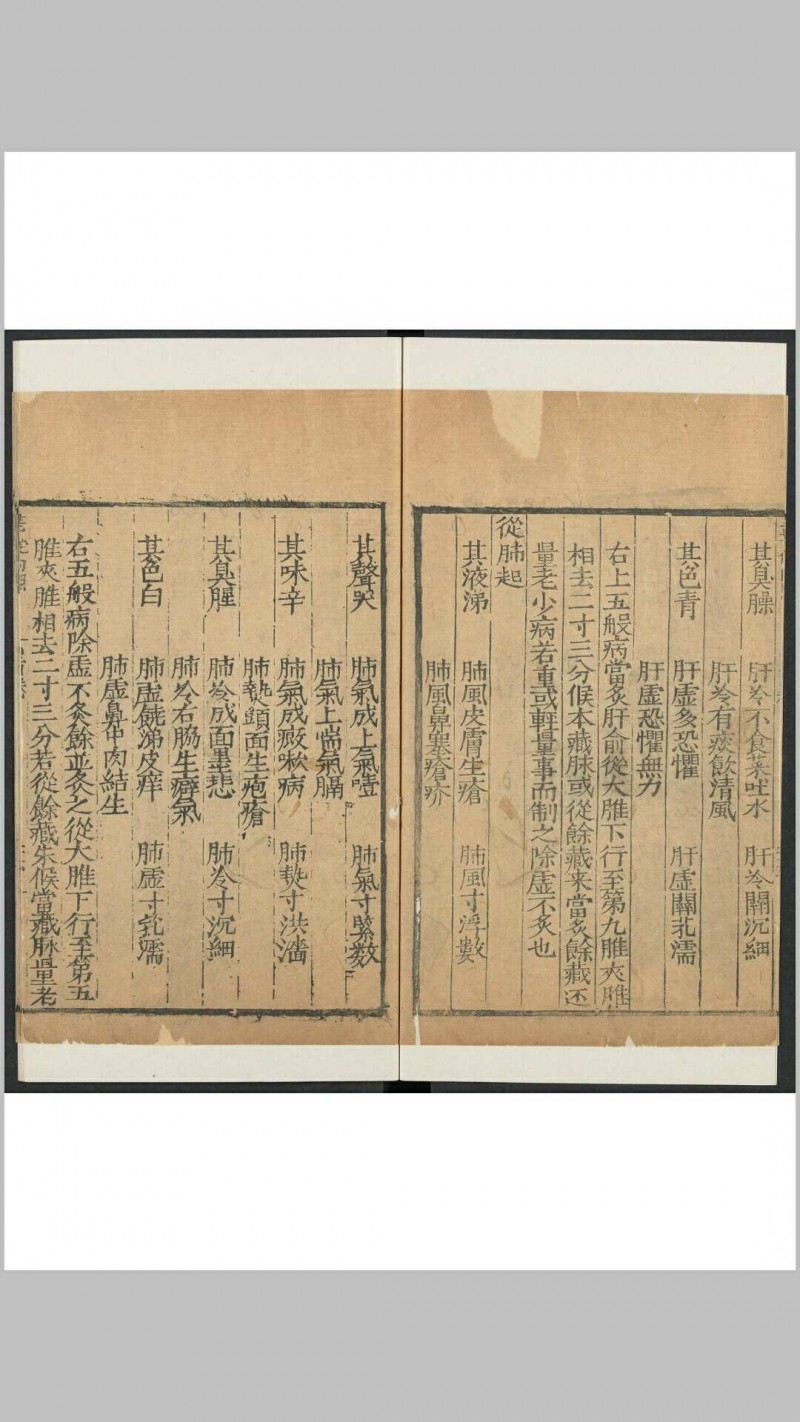 其臭臊　肝冷不食菜吐水　肝冷關沉細
肝冷有痰飲清風
其色青　肝虛多恐懼　肝虛關芤濡
肝虛恐懼無力
右上五般病當炙肝俞從大腄下行至第九腄夾腄
相去二寸三分候本藏脉或從餘藏来當炙餘藏还
量老少病若重或輕量事而制之除虛不炙也
從肺起
其液涕　肺風皮膚生瘡　肺風寸浮數
肺風鼻塞瘡疥
其聲哭　肺氣成上氣噎　肺氣寸緊数
肺氣上喘氣膈
其味辛　肺氣成㾱嗽病　肺𤍠寸洪
肺𤍠頭面生疱瘡
其臭腥　肺冷成面黑悲　肺冷寸沉細
肺冷右脇生癖氣
其色白　肺虛饒涕皮痒　肺虛寸芤濡
肺虛鼻中肉結生
右五般病除虛不灸餘並灸之從大腄下行至第五
腄夾腄相去二寸三分若從餘藏来候當藏脉量老